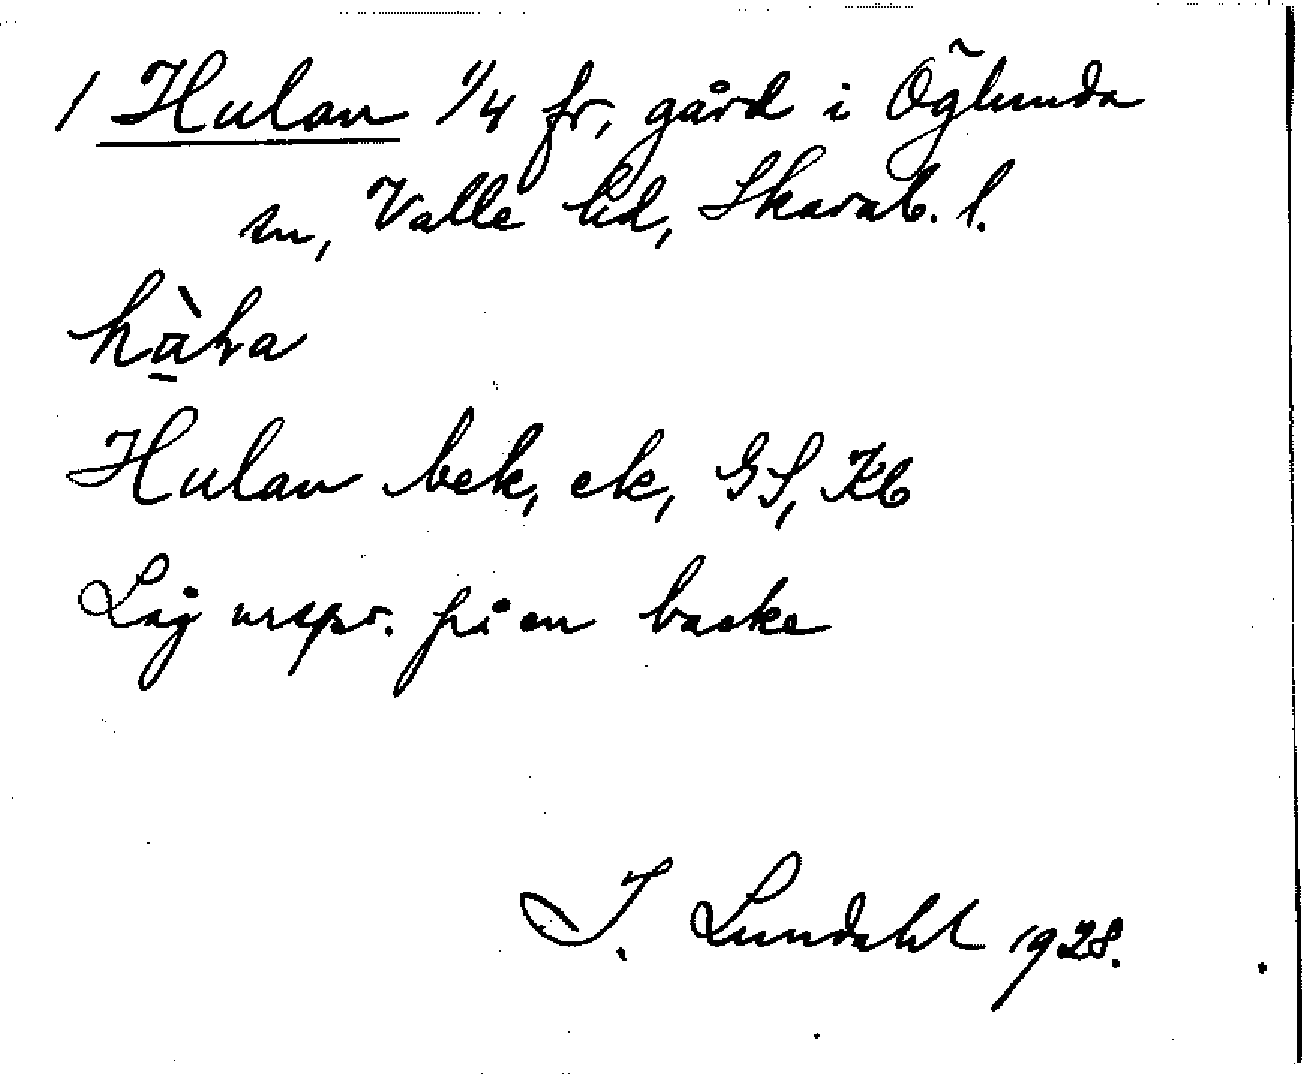 1 Hulan 1/4 fr, gård i Öglunda
sn, Valle hd, Skarab. l.
Hulan bek, ek, GS, Kb
Låg urspr. på en backe
I. Lundahl 1928.